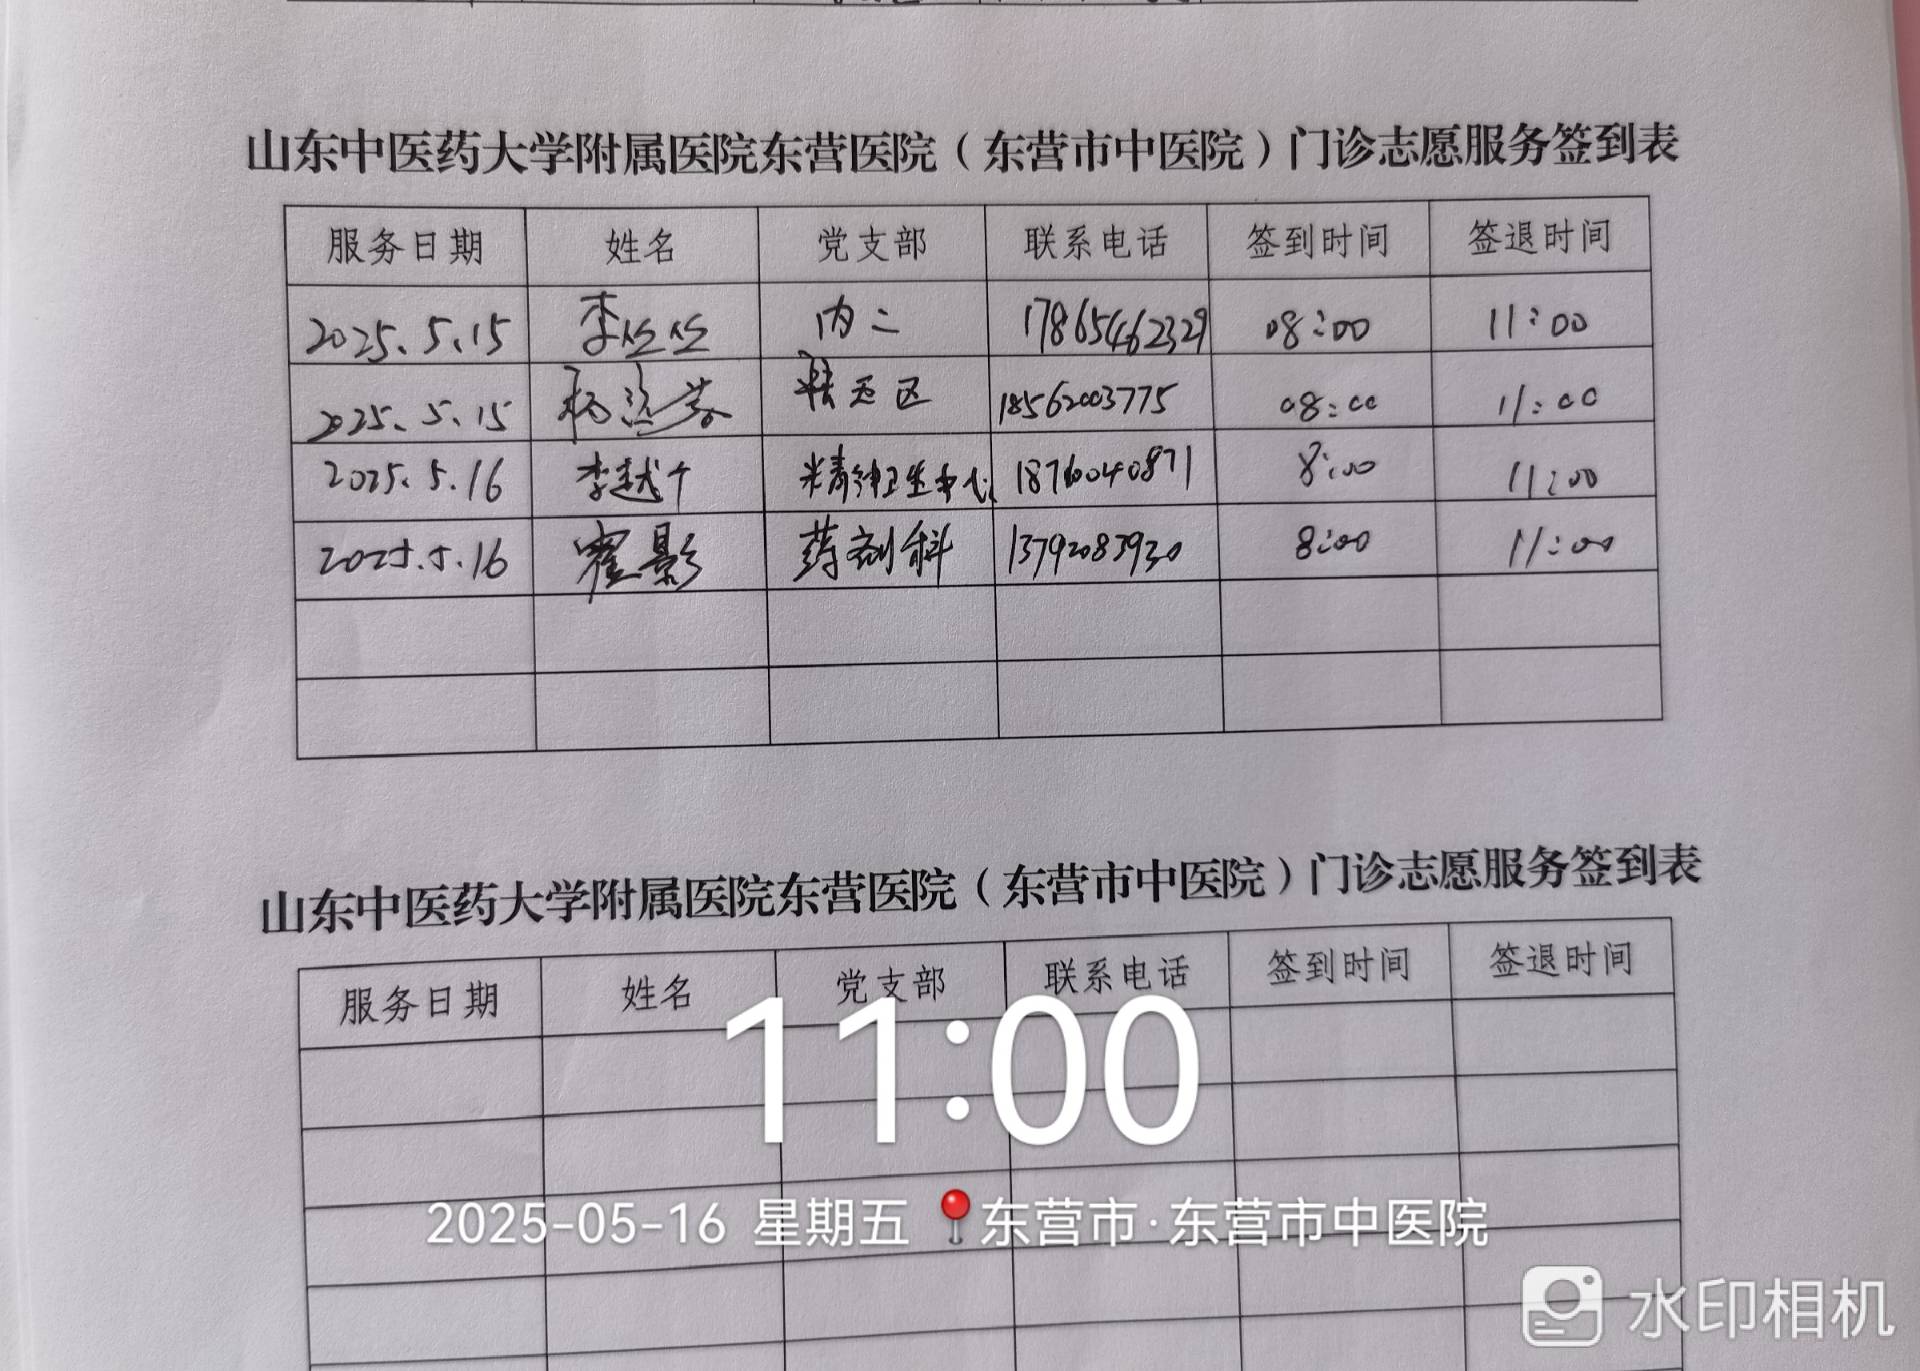 山东中医药大学附属医院东营医院（东营市中医院）门诊志愿服务签到表
服务日期 姓名 党支部 联系电话 签到时间 签退时间
2025.5.15 李 内二 17865462329 08:00 11:00
2025.5.15 杨 区 18562003775 08:00 11:00
2025.5.16 李越千 精神卫生中心 18760040871 8:00 11:00
2025.5.16 霍影 药剂科 13792083930 8:00 11:00
山东中医药大学附属医院东营医院（东营市中医院）门诊志愿服务签到表
服务日期 姓名 党支部 联系电话 签到时间 签退时间
11:00
2025-05-16 星期五 东营市·东营市中医院
水印相机